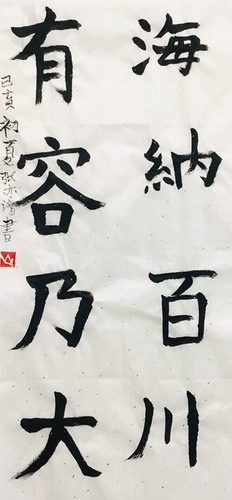 海納百川
有容乃大
己亥初夏张亦諾書